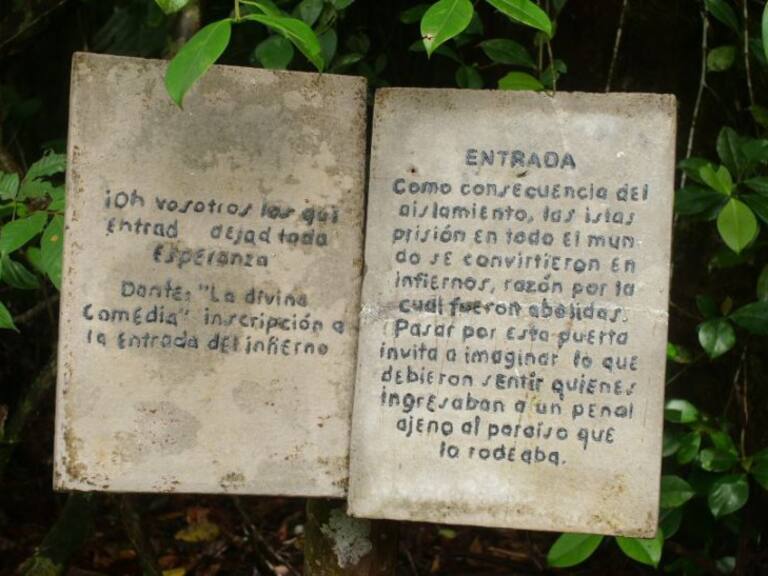 ¡Oh vosotros los que
entrad dejad toda
Esperanza
Dante: "La divina
Comedia" inscripción a
la entrada del infierno
ENTRADA
Como consecuencia del
aislamiento, las islas
prisión en todo el mun
do se convirtieron en
infiernos, razón por la
cual fueron abolidas.
Pasar por esta puerta
invita a imaginar lo que
debieron sentir quienes
ingresaban a un penal
ajeno al paraíso que
lo rodeaba.